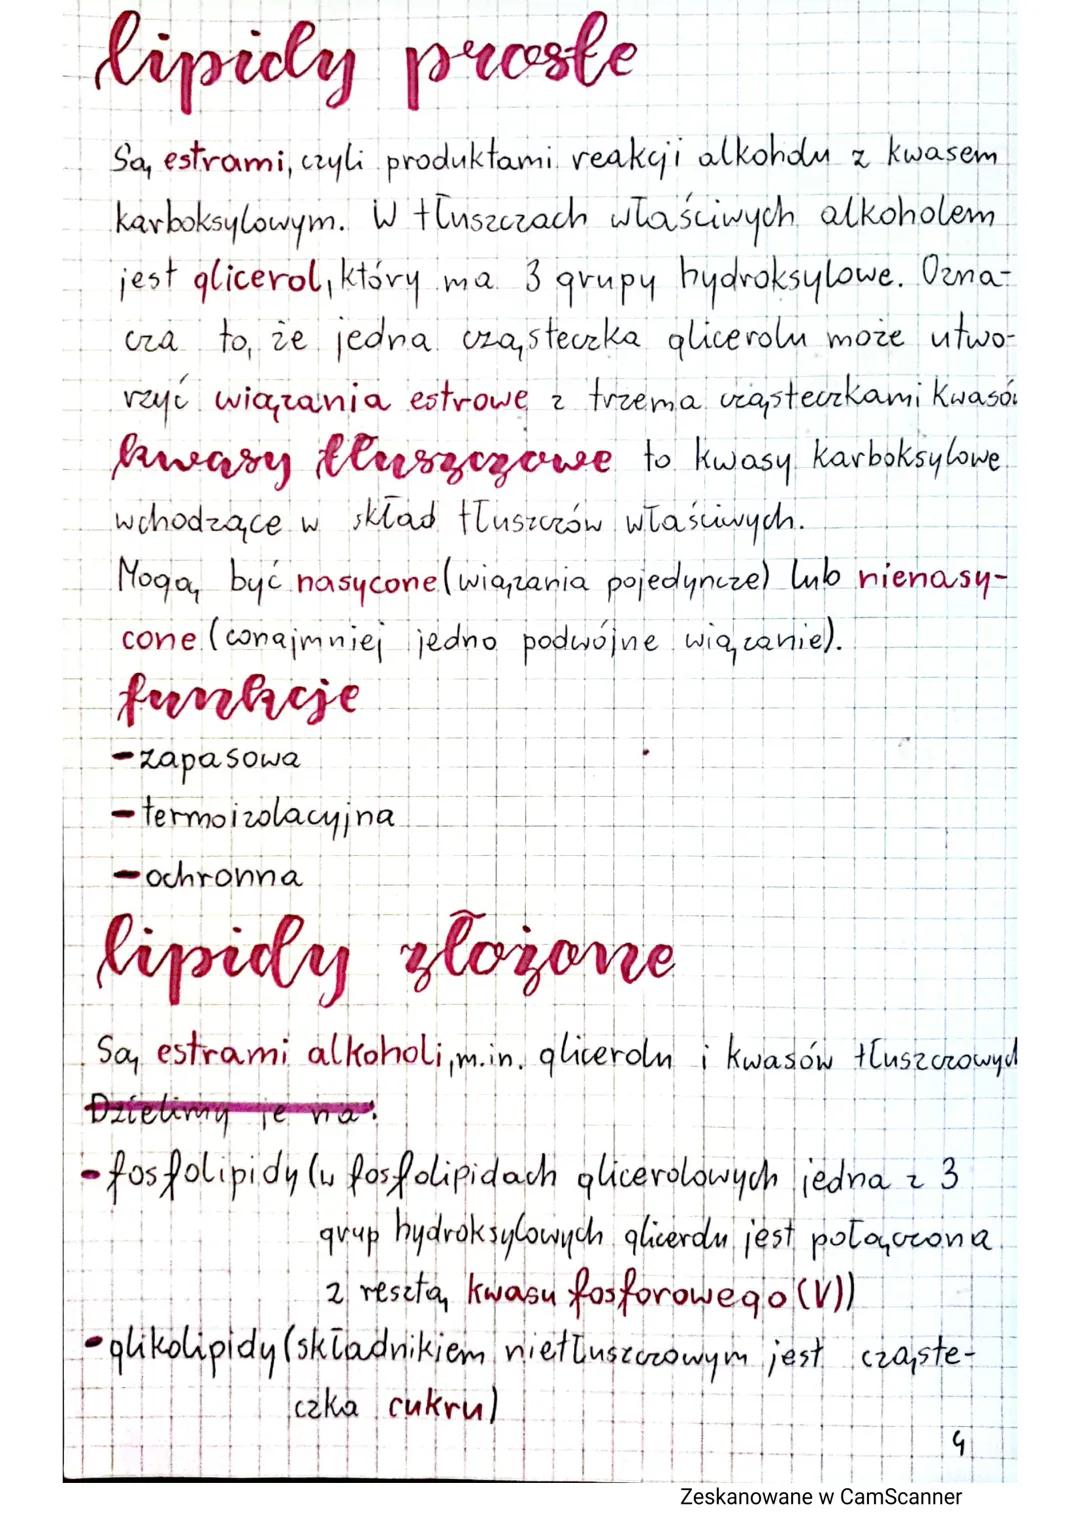 lipidy proste
Są estrami, czyli produktami reakcji alkoholu z kwasem
karboksylowym. W tłuszczach właściwych alkoholem
jest glicerol, który ma 3 grupy hydroksylowe. Ozna-
cza to, że jedna cząsteczka glicerolu może utwo-
rzyć wiązania estrowe z trzema cząsteczkami kwasów
kwasy tłuszczowe to kwasy karboksylowe
wchodzące w skład tłuszczów właściwych.
Mogą być nasycone (wiązania pojedyncze) lub nienasy-
cone (conajmniej jedno podwójne wiązanie).
funkcje
- zapasowa
- termoizolacyjna
- ochronna
lipidy złożone
Są estrami alkoholi, m.in. glicerolu i kwasów tłuszczowych
Dzielimy je na:
- fosfolipidy (w fosfolipidach glicerolowych jedna z 3
grup hydroksylowych glicerolu jest połączona
z resztą kwasu fosforowego (V))
- glikolipidy (składnikiem nietłuszczowym jest cząste-
czka cukru)
4
Zeskanowane w CamScanner